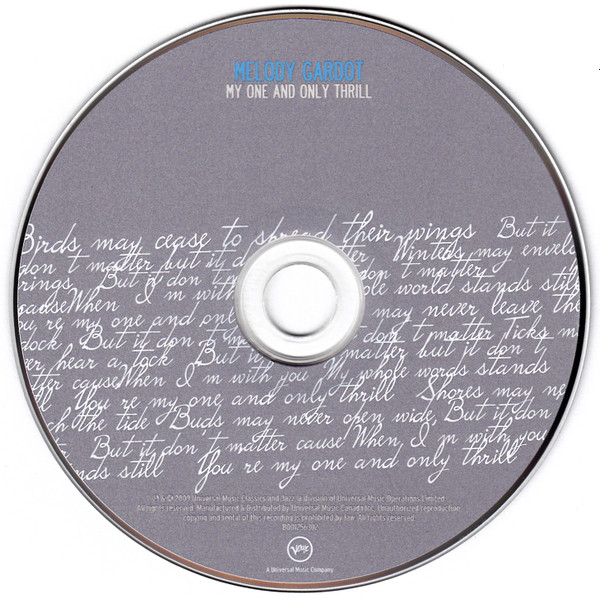 MELODY GARDOT
MY ONE AND ONLY THRILL
Birds may cease to spread their wings But it
don t matter but it d tter, Winters may envelo
rings But it don t don t matter
causeWhen I m with ole world stands still
ou re my one and onl may never leave the
dock But it don t matter don t matter Ticks m
ver hear a tock But it matter but it don t
tter causeWhen I m with you My whole words stands
ll You re my one and only thrill Shores may ne
h the tide Buds may never open wide But it don
But it don t matter cause When I m with you
nds still You re my one and only thrill
℗ & © 2009 Universal Music Classics and Jazz, a division of Universal Music Operations Limited.
All rights reserved. Manufactured & Distributed by Universal Music Canada Inc. Unauthorized reproduction,
copying and rental of this recording is prohibited by law. All rights reserved.
Verve
A Universal Music Company